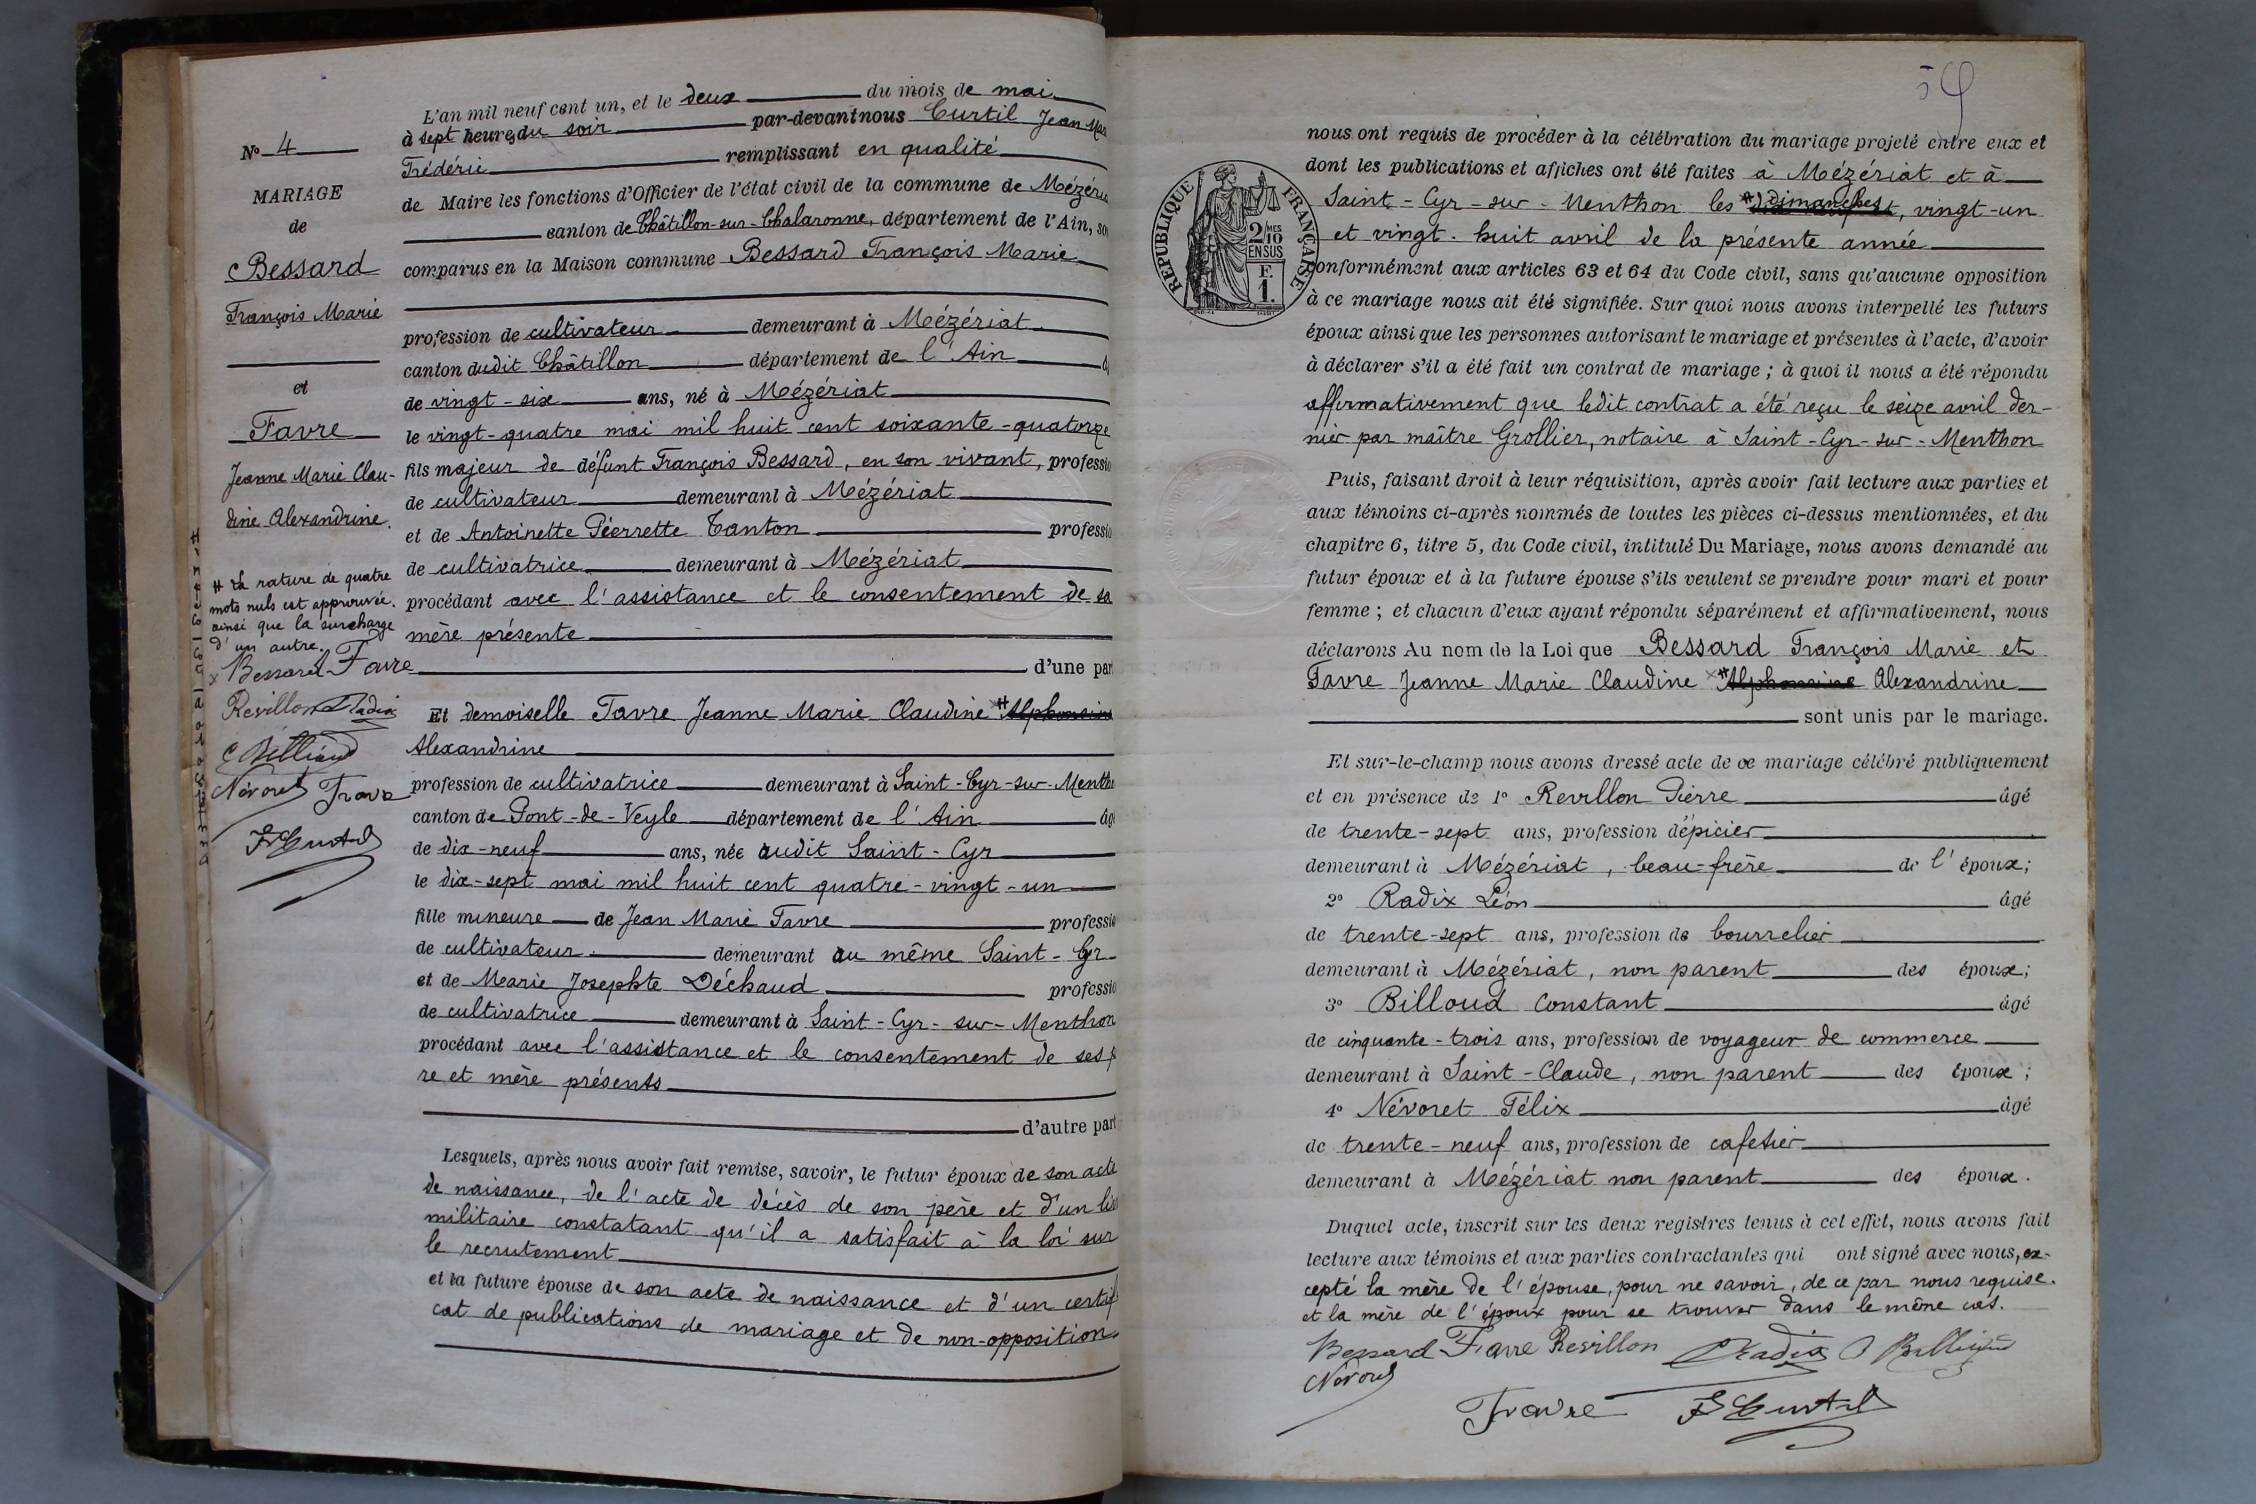 N° 4
MARIAGE
de
Bessard
François Marie
et
Favre
Jeanne Marie Clau-
dine Alexandrine.
# La rature de quatre
mots nuls est approuvée.
ainsi que la surcharge
d'un autre.
x Bessard Favre
Revillon Radix
C Billoud
Névoret Favre
L'an mil neuf cent un, et le deux du mois de mai
à sept heures du soir par-devant nous Curtil Jean
Frédéric remplissant en qualité
de Maire les fonctions d'Officier de l'état civil de la commune de Mézéria
canton de Châtillon-sur-Chalaronne, département de l'Ain, so
comparus en la Maison commune Bessard François Marie
profession de cultivateur demeurant à Mézériat
canton dudit Châtillon département de l'Ain
de vingt-six ans, né à Mézériat
le vingt-quatre mai mil huit cent soixante-quatorze
fils majeur de défunt François Bessard, en son vivant, professio
de cultivateur demeurant à Mézériat
et de Antoinette Pierrette Tanton professio
de cultivatrice demeurant à Mézériat
procédant avec l'assistance et le consentement de sa
mère présente
d'une par
Et demoiselle Favre Jeanne Marie Claudine x# Alphonsine
Alexandrine
profession de cultivatrice demeurant à Saint-Cyr-sur-Mentho
canton de Pont-de-Veyle département de l'Ain âg
de dix-neuf ans, née audit Saint-Cyr
le dix-sept mai mil huit cent quatre-vingt-un
fille mineure de Jean Marie Favre professio
de cultivateur demeurant au même Saint-Cyr
et de Marie Josephte Déchaud professio
de cultivatrice demeurant à Saint-Cyr-sur-Menthon
procédant avec l'assistance et le consentement de ses p
re et mère présents
d'autre part
Lesquels, après nous avoir fait remise, savoir, le futur époux de son acte
de naissance, de l'acte de décès de son père et d'un liv
militaire constatant qu'il a satisfait à la loi sur
le recrutement
et la future épouse de son acte de naissance et d'un certifi
cat de publications de mariage et de non-opposition.
59
RÉPUBLIQUE FRANÇAISE
2/10 MES
EN SUS
F.
1.
nous ont requis de procéder à la célébration du mariage projeté entre eux et
dont les publications et affiches ont été faites à Mézériat et à
Saint-Cyr-sur-Menthon les # dimanches, vingt-un
et vingt-huit avril de la présente année
conformément aux articles 63 et 64 du Code civil, sans qu'aucune opposition
à ce mariage nous ait été signifiée. Sur quoi nous avons interpellé les futurs
époux ainsi que les personnes autorisant le mariage et présentes à l'acte, d'avoir
à déclarer s'il a été fait un contrat de mariage ; à quoi il nous a été répondu
affirmativement que ledit contrat a été reçu le seize avril der-
nier par maître Grollier, notaire à Saint-Cyr-sur-Menthon
Puis, faisant droit à leur réquisition, après avoir fait lecture aux parties et
aux témoins ci-après nommés de toutes les pièces ci-dessus mentionnées, et du
chapitre 6, titre 5, du Code civil, intitulé Du Mariage, nous avons demandé au
futur époux et à la future épouse s'ils veulent se prendre pour mari et pour
femme ; et chacun d'eux ayant répondu séparément et affirmativement, nous
déclarons Au nom de la Loi que Bessard François Marie et
Favre Jeanne Marie Claudine x# Alphonsine Alexandrine
sont unis par le mariage.
Et sur-le-champ nous avons dressé acte de ce mariage célébré publiquement
et en présence de 1° Revillon Pierre âgé
de trente-sept ans, profession d'épicier
demeurant à Mézériat, beau-frère de l'époux;
2° Radix Léon âgé
de trente-sept ans, profession de bourrelier
demeurant à Mézériat, non parent des époux;
3° Billoud Constant âgé
de cinquante-trois ans, profession de voyageur de commerce
demeurant à Saint-Claude, non parent des époux;
4° Névoret Félix âgé
de trente-neuf ans, profession de cafetier
demeurant à Mézériat non parent des époux.
Duquel acte, inscrit sur les deux registres tenus à cet effet, nous avons fait
lecture aux témoins et aux parties contractantes qui ont signé avec nous, ex-
cepté la mère de l'épouse, pour ne savoir, de ce par nous requise.
et la mère de l'époux pour se trouver dans le même cas.
Bessard Favre Revillon Radix C Billoud
Névoret
Favre F Curtil